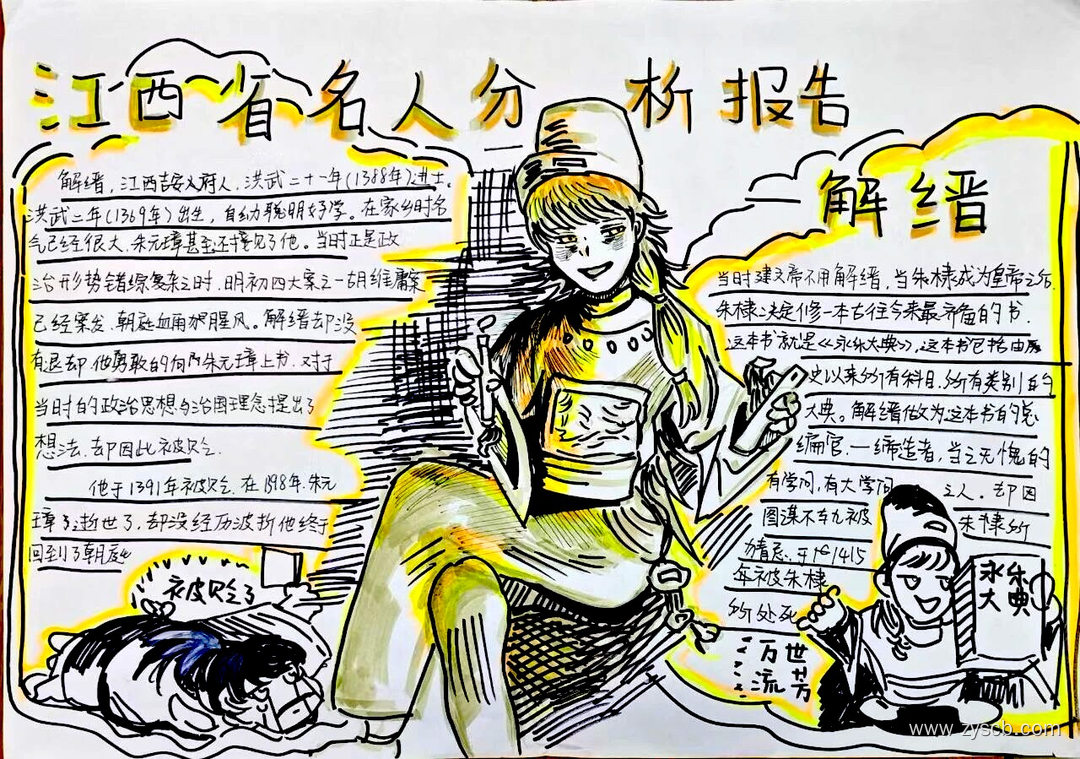 江西省名人分析报告
解缙，江西吉安义府人，洪武二十一年(1388年)进士。
洪武二年(1369年)出生，自幼聪明好学。在家乡时名
气已经很大，朱元璋甚至还接见了他。当时正是政
治形势错综复杂之时，明初四大案之一胡惟庸案
已经案发，朝廷血雨腥风。解缙却没
有退却，他勇敢的向朱元璋上书，对于
当时的政治思想与治国理念提出了
想法，却因此被贬。
他于1391年被贬，在1898年，朱元
璋了逝世了，却没经历波折他终于
回到了朝廷
被贬了
解缙
当时建文帝不用解缙，当朱棣成为皇帝之后，
朱棣决定修一本古往今来最齐备的书，
这本书就是《永乐大典》，这本书包括由历
史以来所有科目，所有类别的
大典。解缙做为这本书的总
编官，一缔造者，当之无愧的
有学问，有大学问之人。却因
图谋不轨被朱棣所
猜忌，于1415
年被朱棣
所处死
永乐
大典
万世
流芳
www.zyscb.com